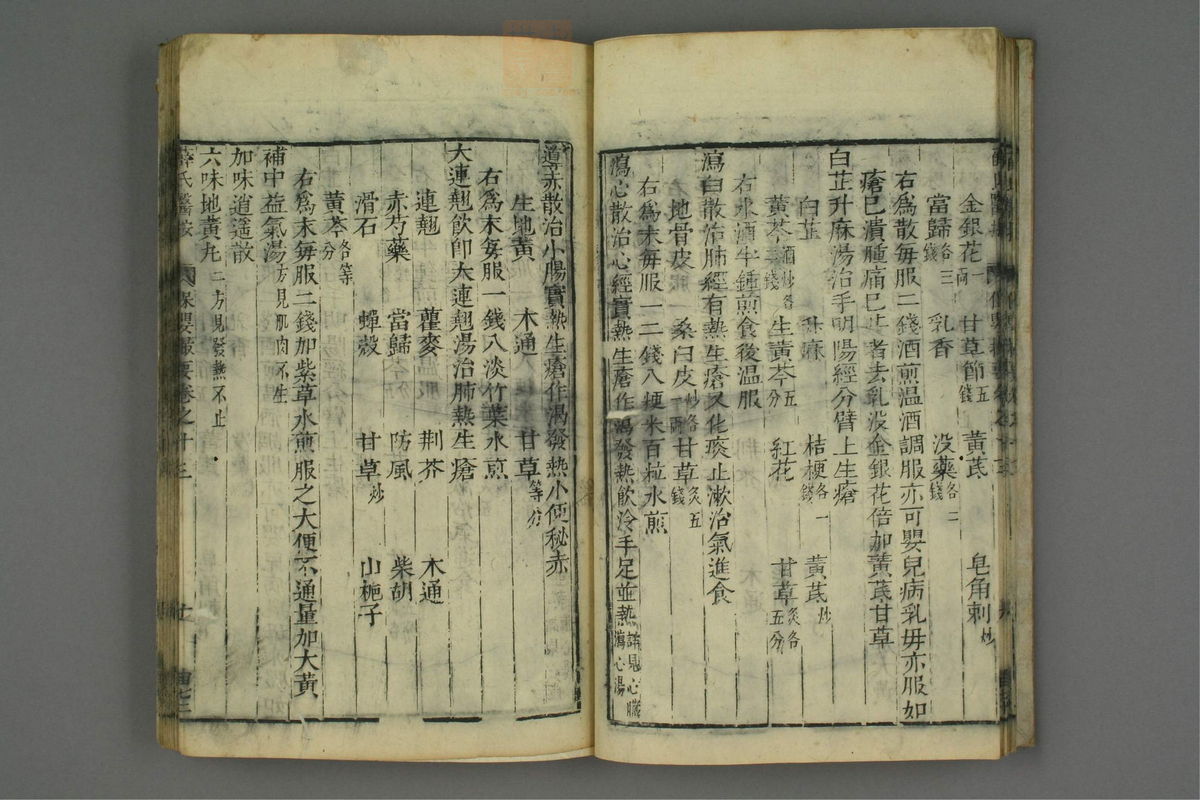 金銀花一兩 甘草節五錢 黃芪 皂角刺炒
當歸各三錢 乳香 没藥各二錢
右爲散每服二錢酒煎温酒調服亦可嬰兒病乳母亦服如
瘡已潰腫痛已止者去乳没金銀花倍加黃芪甘草
白芷升麻湯治手明陽經分臂上生瘡
白芷 升麻 桔梗各一錢 黃芪炒
黃芩酒炒各二錢 生黃芩五分 紅花 甘草炙各五分
右水酒半鍾煎食後温服
瀉白散治肺經有熱生瘡又化痰止漱治氣進食
地骨皮 桑白皮炒各一兩 甘草炙五錢
右爲末每服一二錢入粳米百粒水煎
瀉心散治心經實熱生瘡作渴發熱飲冷手足並熱詳見心臟瀉心湯
導赤散治小腸實熱生瘡作渴發熱小便秘赤
生地黃 木通 甘草等分
右爲末每服一錢入淡竹葉水煎
大連翹飲卽大連翹湯治肺熱生瘡
連翹 瞿麥 荆芥 木通
赤芍藥 當歸 防風 柴胡
滑石 蟬殼 甘草炒 山梔子
黃芩各等分
右爲末每服二錢加紫草水煎服之大便不通量加大黃
補中益氣湯方見肌肉不生
加味逍遥散
六味地黃丸二方見發熱不止
薛氏醫按 保嬰撮要卷之十三